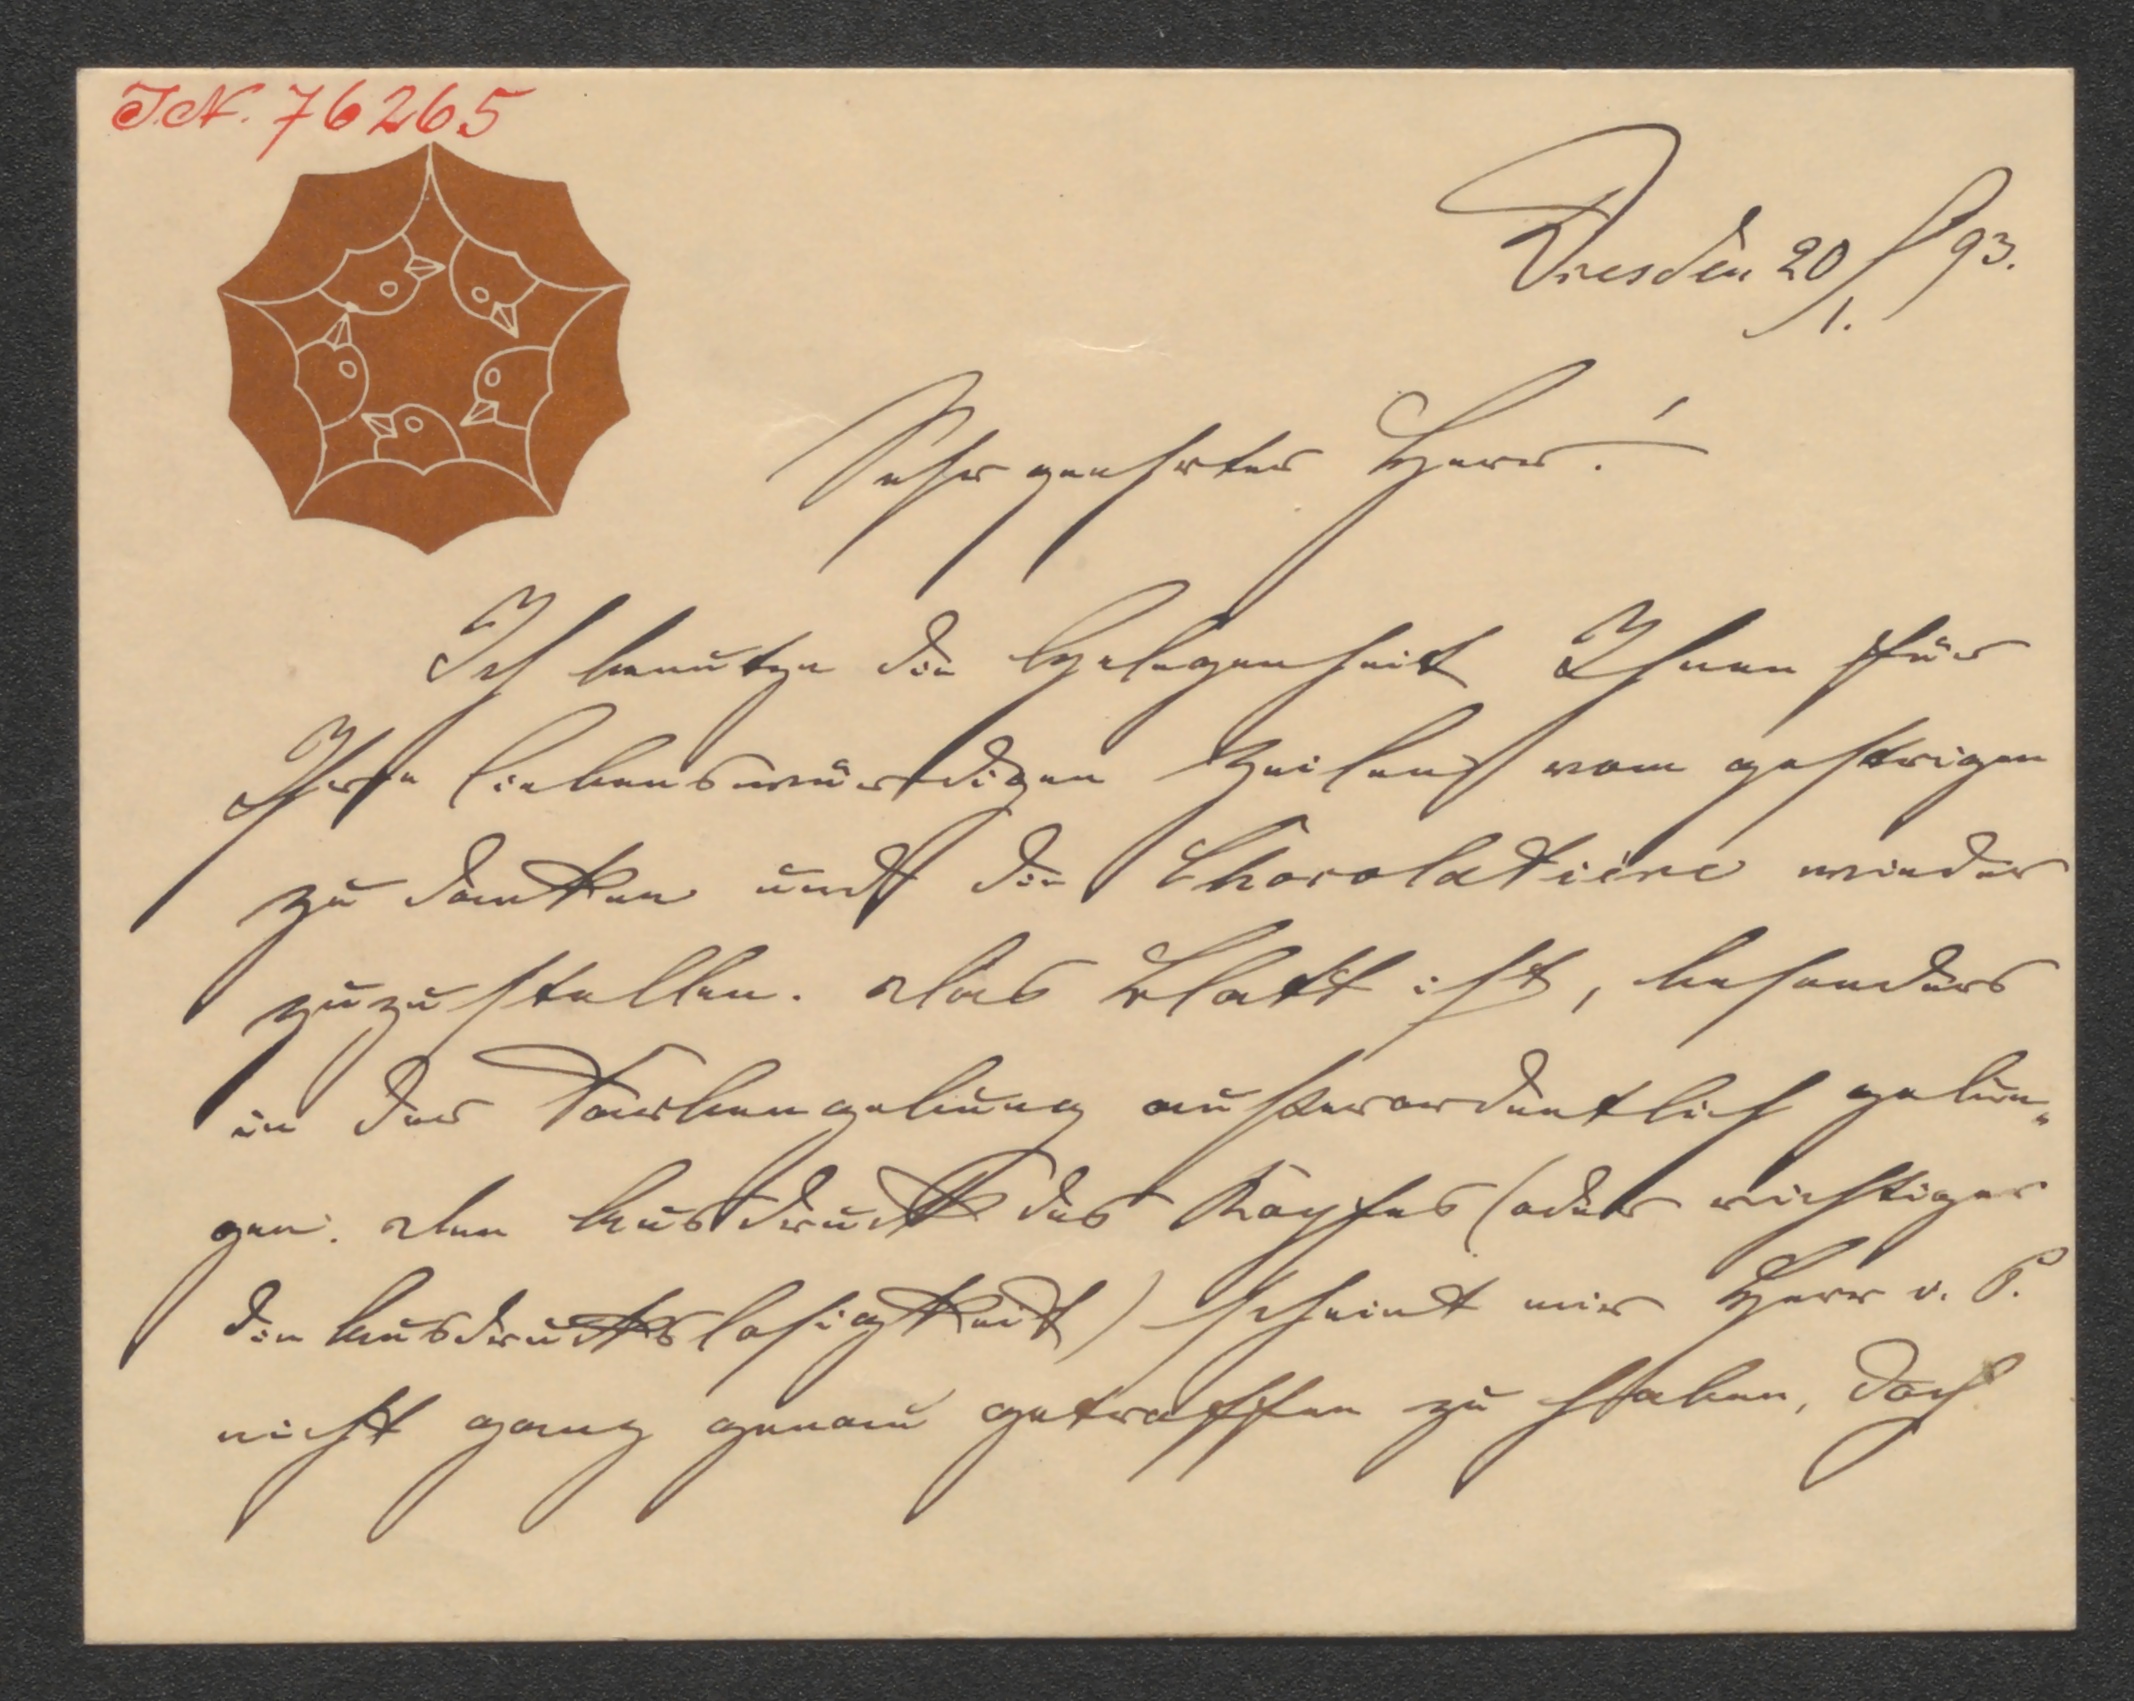 I.N. 76265
Dresden 20/1. 93.
Sehr geehrter Herr!
Ich benutze die Gelegenheit Ihnen für
Ihre liebenswürdigen Zeilen vom gestrigen
zu danken und die Chocolatière wieder
zuzustellen. Das Blatt ist, besonders
in der Farbengebung außerordentlich gelun-
gen. Den Ausdruck des Kopfes (oder richtiger
die Ausdruckslosigkeit) scheint mir Herr v. P.
nicht ganz genau getroffen zu haben, doch